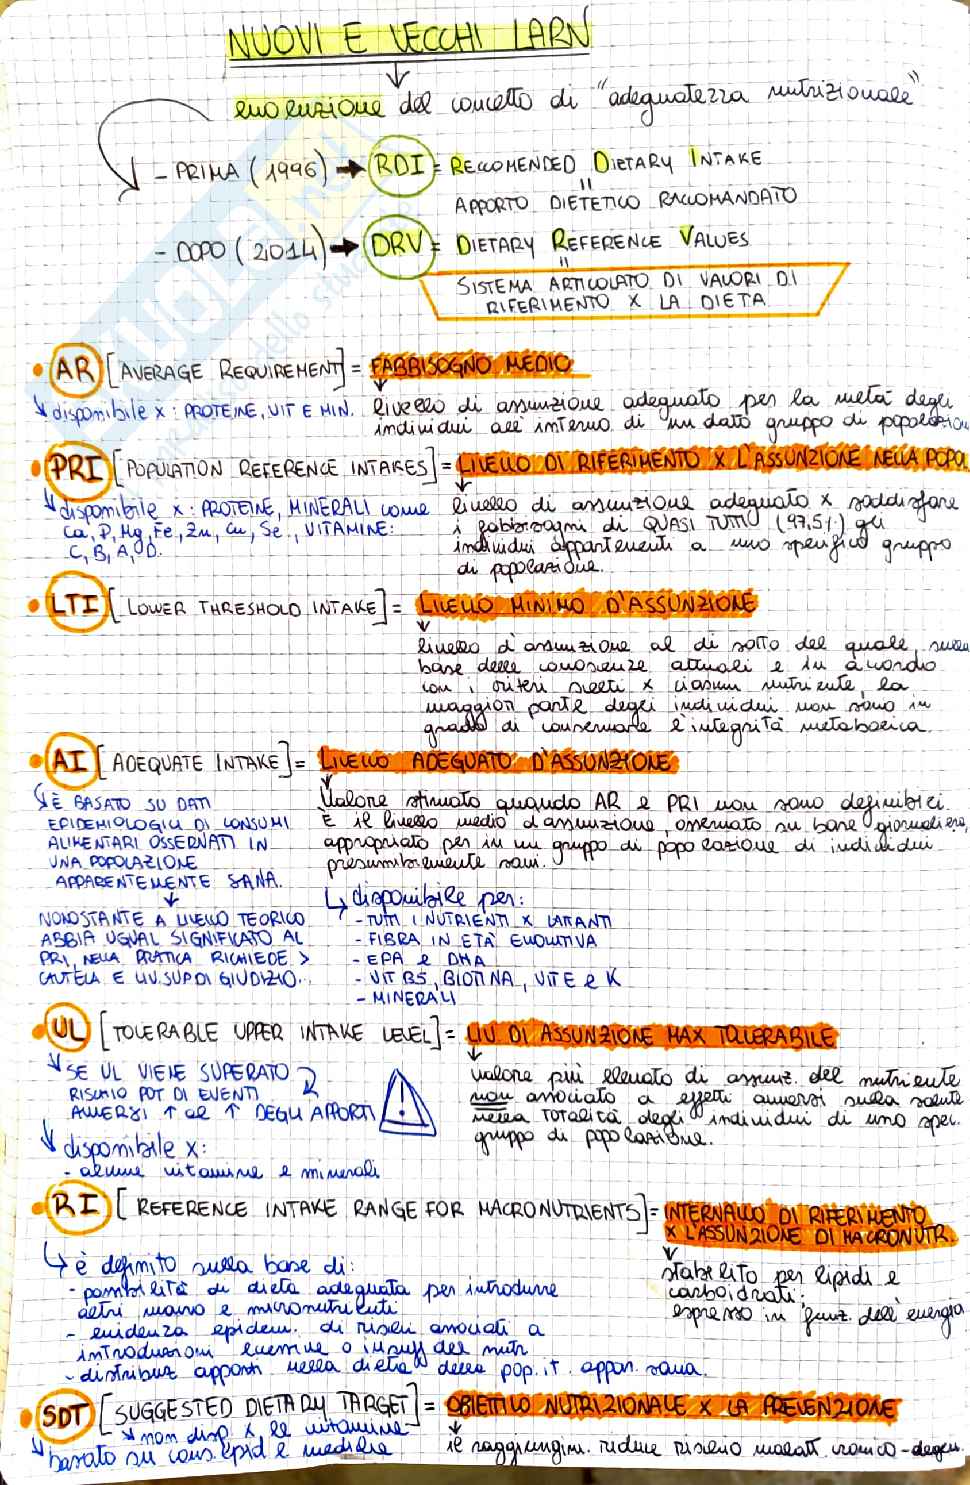 NUOVI E VECCHI LARN
evoluzione del concetto di "adeguatezza nutrizionale"
- PRIMA (1996) → RDI = RECCOMENDED DIETARY INTAKE
=
APPORTO DIETETICO RACCOMANDATO
- DOPO (2014) → DRV = DIETARY REFERENCE VALUES
=
SISTEMA ARTICOLATO DI VALORI DI
RIFERIMENTO X LA DIETA
• AR [AVERAGE REQUIREMENT] = FABBISOGNO MEDIO
disponibile x: PROTEINE, VIT E MIN.
livello di assunzione adeguato per la metà degli
individui all'interno di un dato gruppo di popolazion
• PRI [POPULATION REFERENCE INTAKES] = LIVELLO DI RIFERIMENTO X L'ASSUNZIONE NELLA POPOL
disponibile x: PROTEINE, MINERALI come
Ca, P, Mg, Fe, Zn, Cu, Se, VITAMINE:
C, B, A, D.
livello di assunzione adeguato x soddisfare
i fabbisogni di QUASI TUTTI (97,5%) gli
individui appartenenti a uno specifico gruppo
di popolazione.
• LTI [LOWER THRESHOLD INTAKE] = LIVELLO MINIMO D'ASSUNZIONE
livello d'assunzione al di sotto del quale, sulla
base delle conoscenze attuali e in accordo
con i criteri scelti x ciascun nutriente, la
maggior parte degli individui non sono in
grado di conservare l'integrità metabolica.
• AI [ADEQUATE INTAKE] = LIVELLO ADEGUATO D'ASSUNZIONE
È BASATO SU DATI
EPIDEMIOLOGICI DI CONSUMI
ALIMENTARI OSSERVATI IN
UNA POPOLAZIONE
APPARENTEMENTE SANA.
NONOSTANTE A LIVELLO TEORICO
ABBIA UGUAL SIGNIFICATO AL
PRI, NELLA PRATICA RICHIEDE >
CAUTELA E LIV. SUP DI GIUDIZIO.
Valore stimato quando AR e PRI non sono definibili.
È il livello medio d'assunzione, osservato su base giornaliera,
appropriato per in un gruppo di popolazione di individui
presumibilmente sani.
disponibile per:
- TUTTI I NUTRIENTI X LATTANTI
- FIBRA IN ETÀ EVOLUTIVA
- EPA e DHA
- VIT B5, BIOTINA, VIT E e K
- MINERALI
• UL [TOLERABLE UPPER INTAKE LEVEL] = LIV DI ASSUNZIONE MAX TOLLERABILE
SE UL VIENE SUPERATO
RISCHIO POT DI EVENTI
AVVERSI ↑ al ↑ DEGLI APPORTI
!
disponibile x:
- alcune vitamine e minerali
valore più elevato di assunz. del nutriente
non associato a effetti avversi sulla salute
nella TOTALITÀ degli individui di uno spec.
gruppo di popolazione.
• RI [REFERENCE INTAKE RANGE FOR MACRONUTRIENTS] = INTERVALLO DI RIFERIMENTO
X L'ASSUNZIONE DI MACRONUTR.
è definito sulla base di:
- possibilità di dieta adeguata per introdurre
altri macro e micronutrienti
- evidenza epidem. di rischi associati a
introduzioni eccessive o insuff del nutr
- distribuz apporti nella dieta della pop. it. appar. sana.
stabilito per lipidi e
carboidrati;
espresso in funz. dell'energia
• SDT [SUGGESTED DIETARY TARGET] = OBIETTIVO NUTRIZIONALE X LA PREVENZIONE
non disp. x le vitamine
basato su cons. epid e mediche
il raggiungim. riduce rischio malatt. cronico-degen.